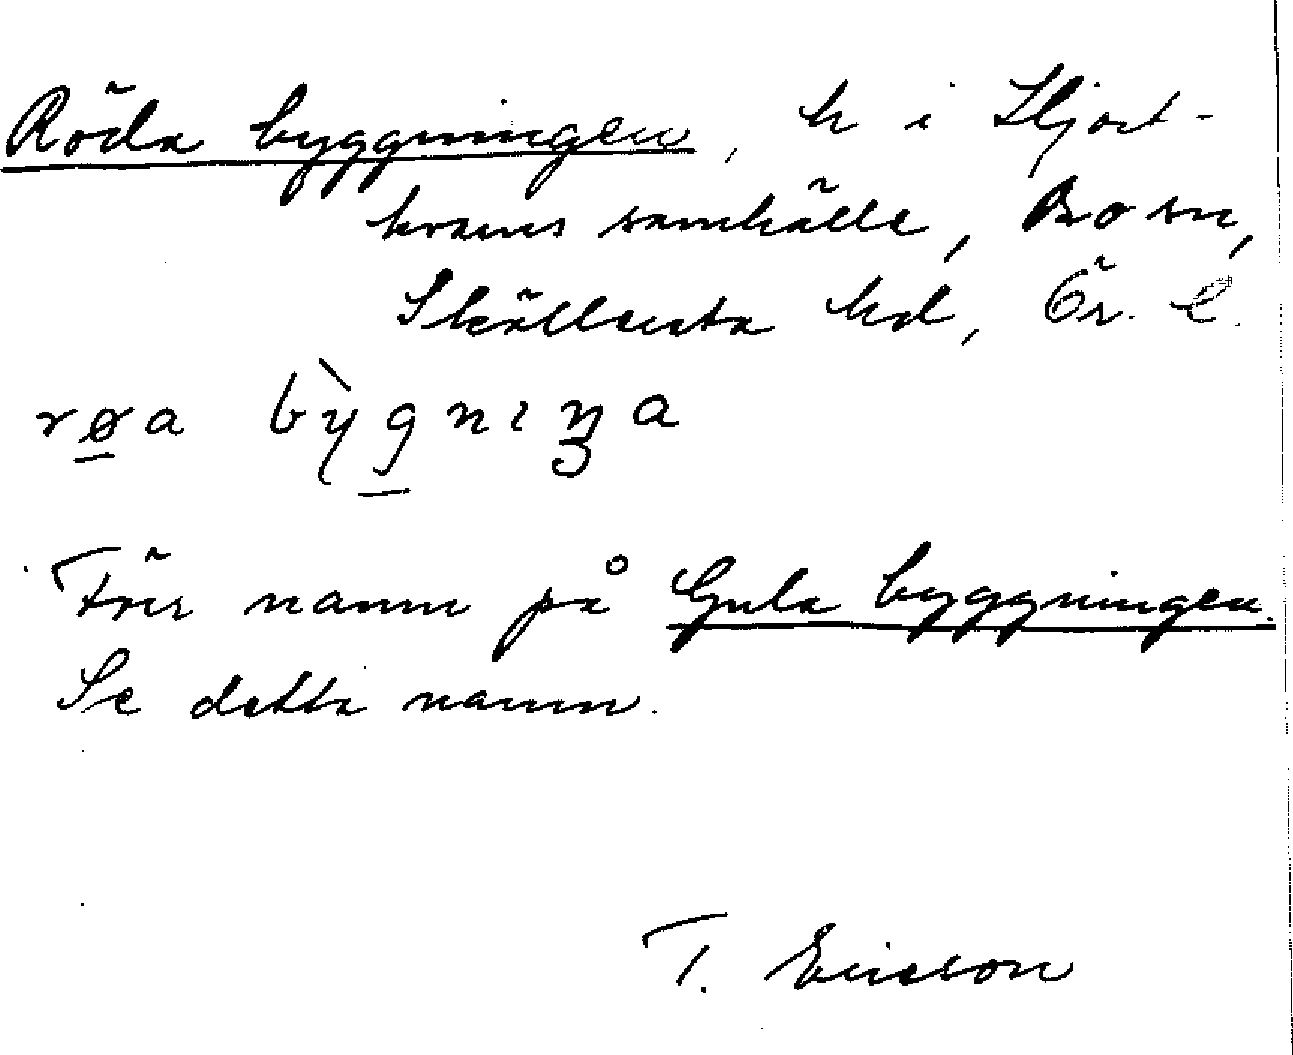 Röda byggningen, h i Hjort-
kvarns samhälle, Bo sn,
Sköllersta hd, Ör. l.
røa bỳgnıŋa
Förr namn på Gula byggningen.
Se detta namn.
T. Ericson